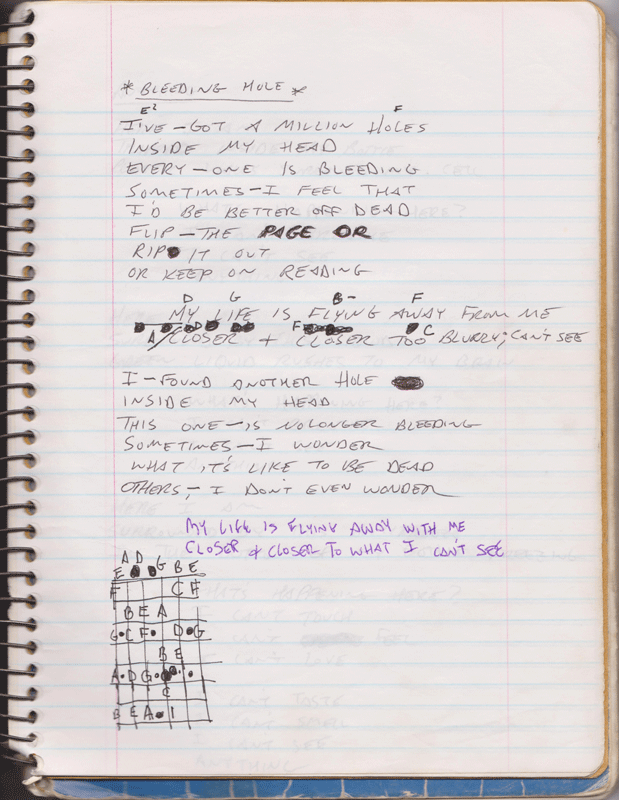 * BLEEDING HOLE *
E² F
I'VE - GOT A MILLION HOLES
INSIDE MY HEAD
EVERY - ONE IS BLEEDING
SOMETIMES - I FEEL THAT
I'D BE BETTER OFF DEAD
FLIP - THE PAGE OR
RIP IT OUT
OR KEEP ON READING
D G B- F
MY LIFE IS FLYING AWAY FROM ME
A F C
CLOSER + CLOSER TOO BLURRY; CAN'T SEE
I - FOUND ANOTHER HOLE
INSIDE MY HEAD
THIS ONE - IS NO LONGER BLEEDING
SOMETIMES - I WONDER
WHAT IT'S LIKE TO BE DEAD
OTHERS, - I DON'T EVEN WONDER
MY LIFE IS FLYING AWAY WITH ME
CLOSER & CLOSER TO WHAT I CAN'T SEE
E A D G B E
F C F
B E A
G C F D G
B E
A D G
C
B E A